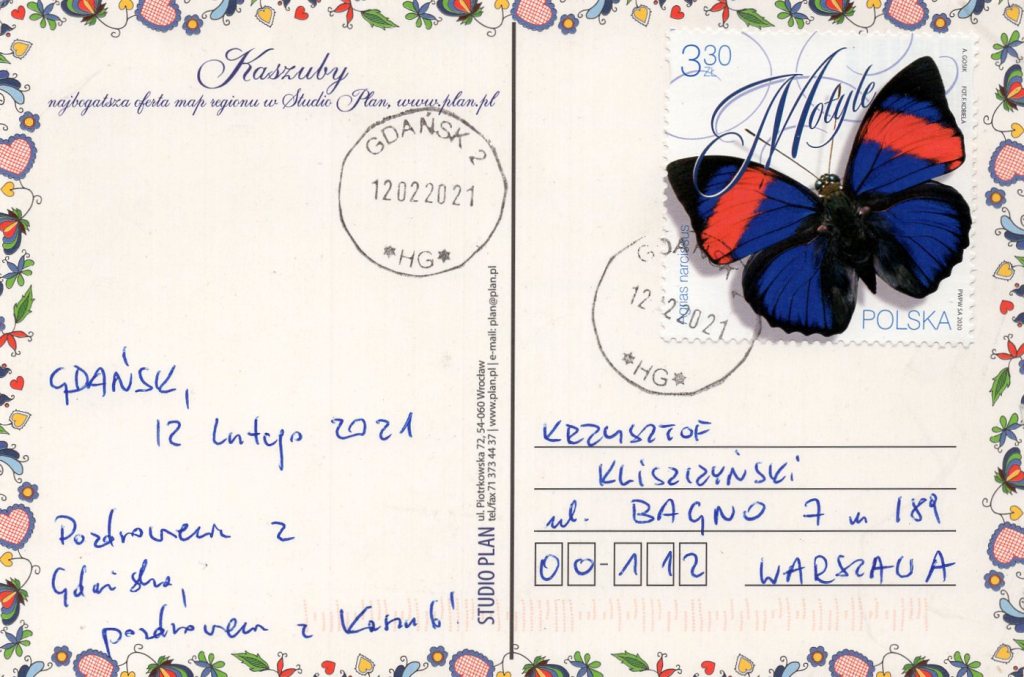 Kaszuby
najbogatsza oferta map regionu w Studio Plan, www.plan.pl
GDAŃSK 2
12022021
*HG*
GDAŃSK,
12 lutego 2021
Pozdrowienia z
Gdańska,
pozdrowienia z Kaszub!
STUDIO PLAN
ul. Piotrkowska 72, 54-060 Wrocław
tel/fax 71 373 44 37 | www.plan.pl | e-mail: plan@plan.pl
3,30
ZŁ
Motyle
A. GOSIK FOT. F. KOBELA
Agrias narcissus
POLSKA
PWPW SA 2020
GDAŃSK
12 22021
*HG*
KRZYSZTOF
KLISZCZYŃSKI
ul. BAGNO 7 m 189
00-112 WARSZAWA